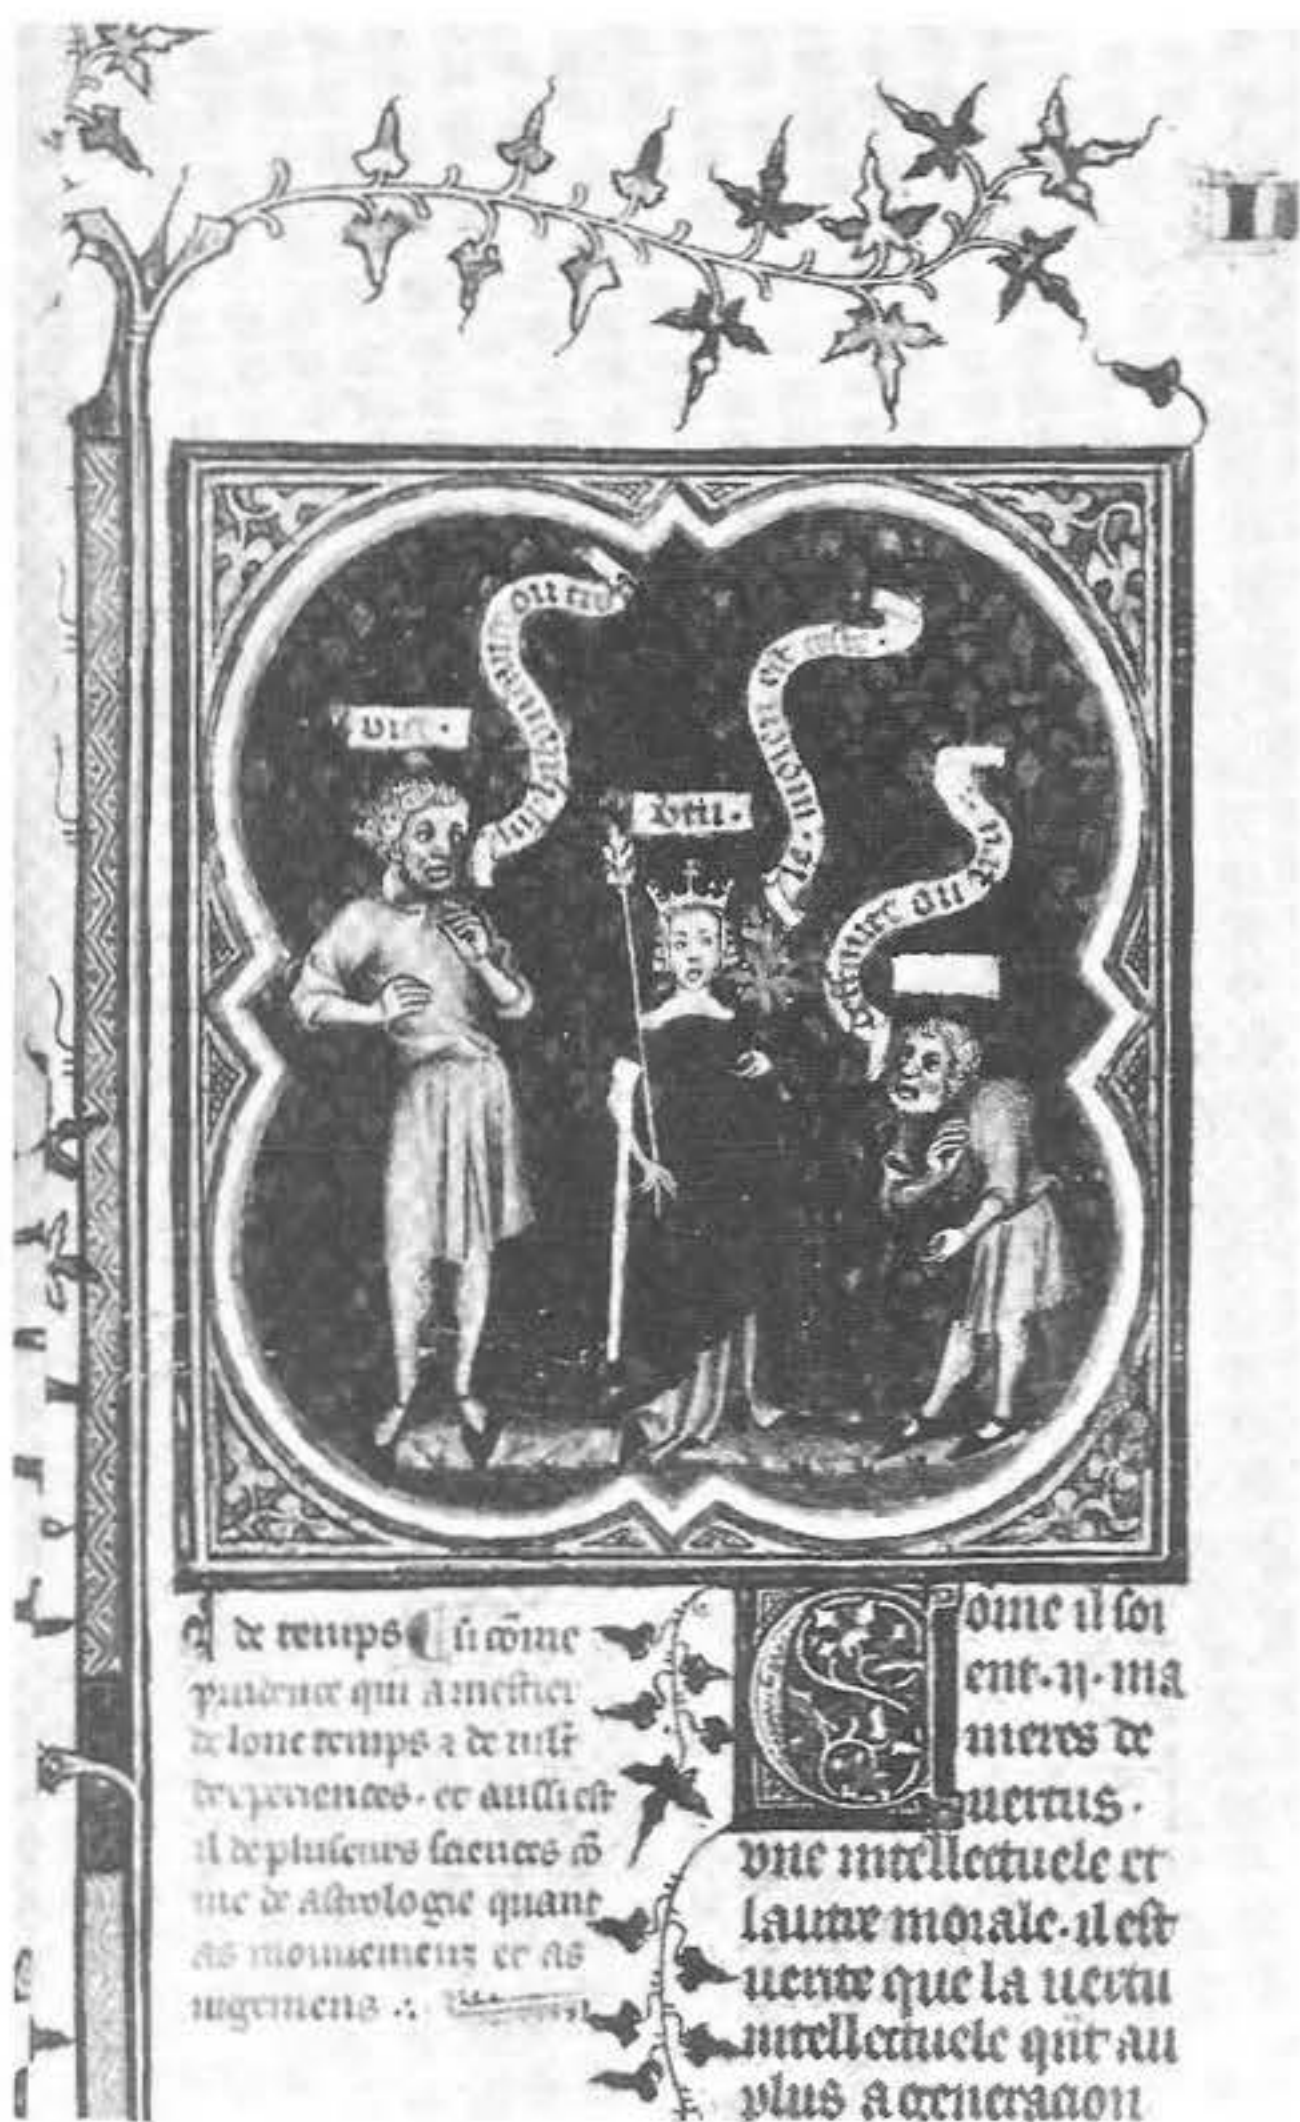 ou trop
le moien ou
ou peu
vertu.
de temps si cõme
prudence qui a mestier
de lonc temps ⁊ de mlt̃
dexperiences. et aussi est
il de pluseurs sciences cõ
me de astrologie quant
as mouuemenz et as
iugemens
Come il soi
ent .ij. ma
nieres de
uertus.
vne intellectuele et
lautre morale. il est
uerite que la uertu
intellectuele qñt au
plus a generacion